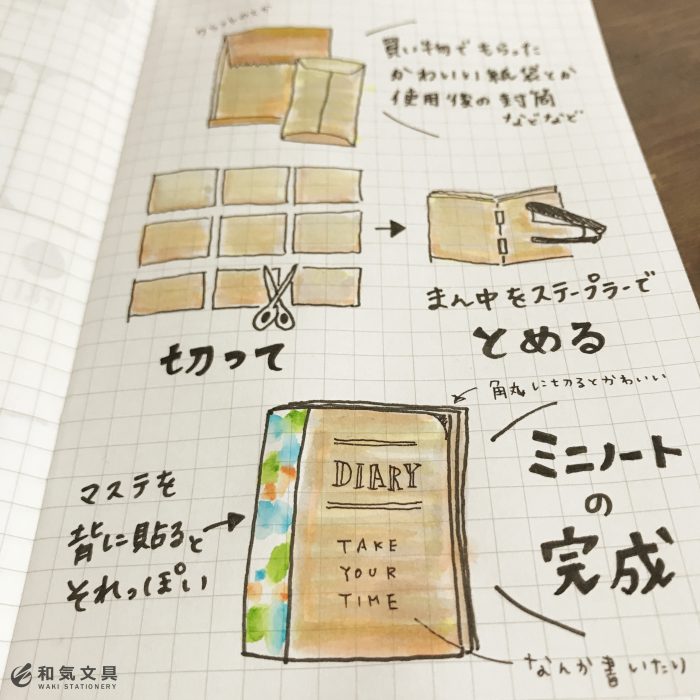 買い物でもらった
かわいい紙袋とか
使用後の封筒
などなど
切って
まん中をステープラーで
とめる
角丸に切るとかわいい
マステを
背に貼ると
それっぽい
DIARY
TAKE
YOUR
TIME
ミニノート
の
完成
なんか書いたり
和気文具
WAKI STATIONERY